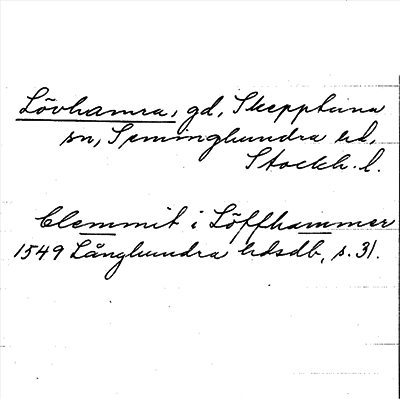 Lövhamra, gd, Skepptuna
sn, Seminghundra hd,
Stockh. l.
Clemmit i Löffhammer
1549 Långhundra hdsdb, s. 31.